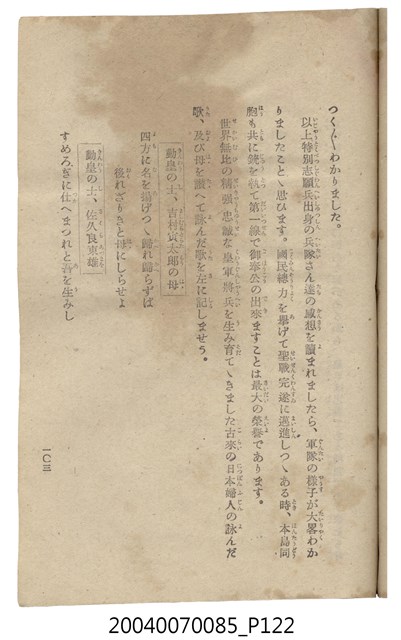 つく〴〵わかりました。
以上特別志願兵出身の兵隊さん達の感想を讀まれましたら、軍隊の樣子が大畧わか
りましたことゝ思ひます。國民總力を擧げて聖戰完遂に邁進しつゝある時、本島同
胞も共に銃を執て第一線で御奉公の出來ますことは最大の榮譽であります。
世界無比の精强、忠誠な皇軍將兵を生み育てゝきました古來の日本婦人の詠んだ
歌、及び母を讃へて詠んだ歌を左に記しませう。
勤皇の士、吉村寅太郎の母
四方に名を揚げつゝ歸れ歸らずば
後れざりきと母にしらせよ
勤皇の士、佐久良東雄
すめろぎに仕へまつれと吾を生みし
一〇三
20040070085_P122